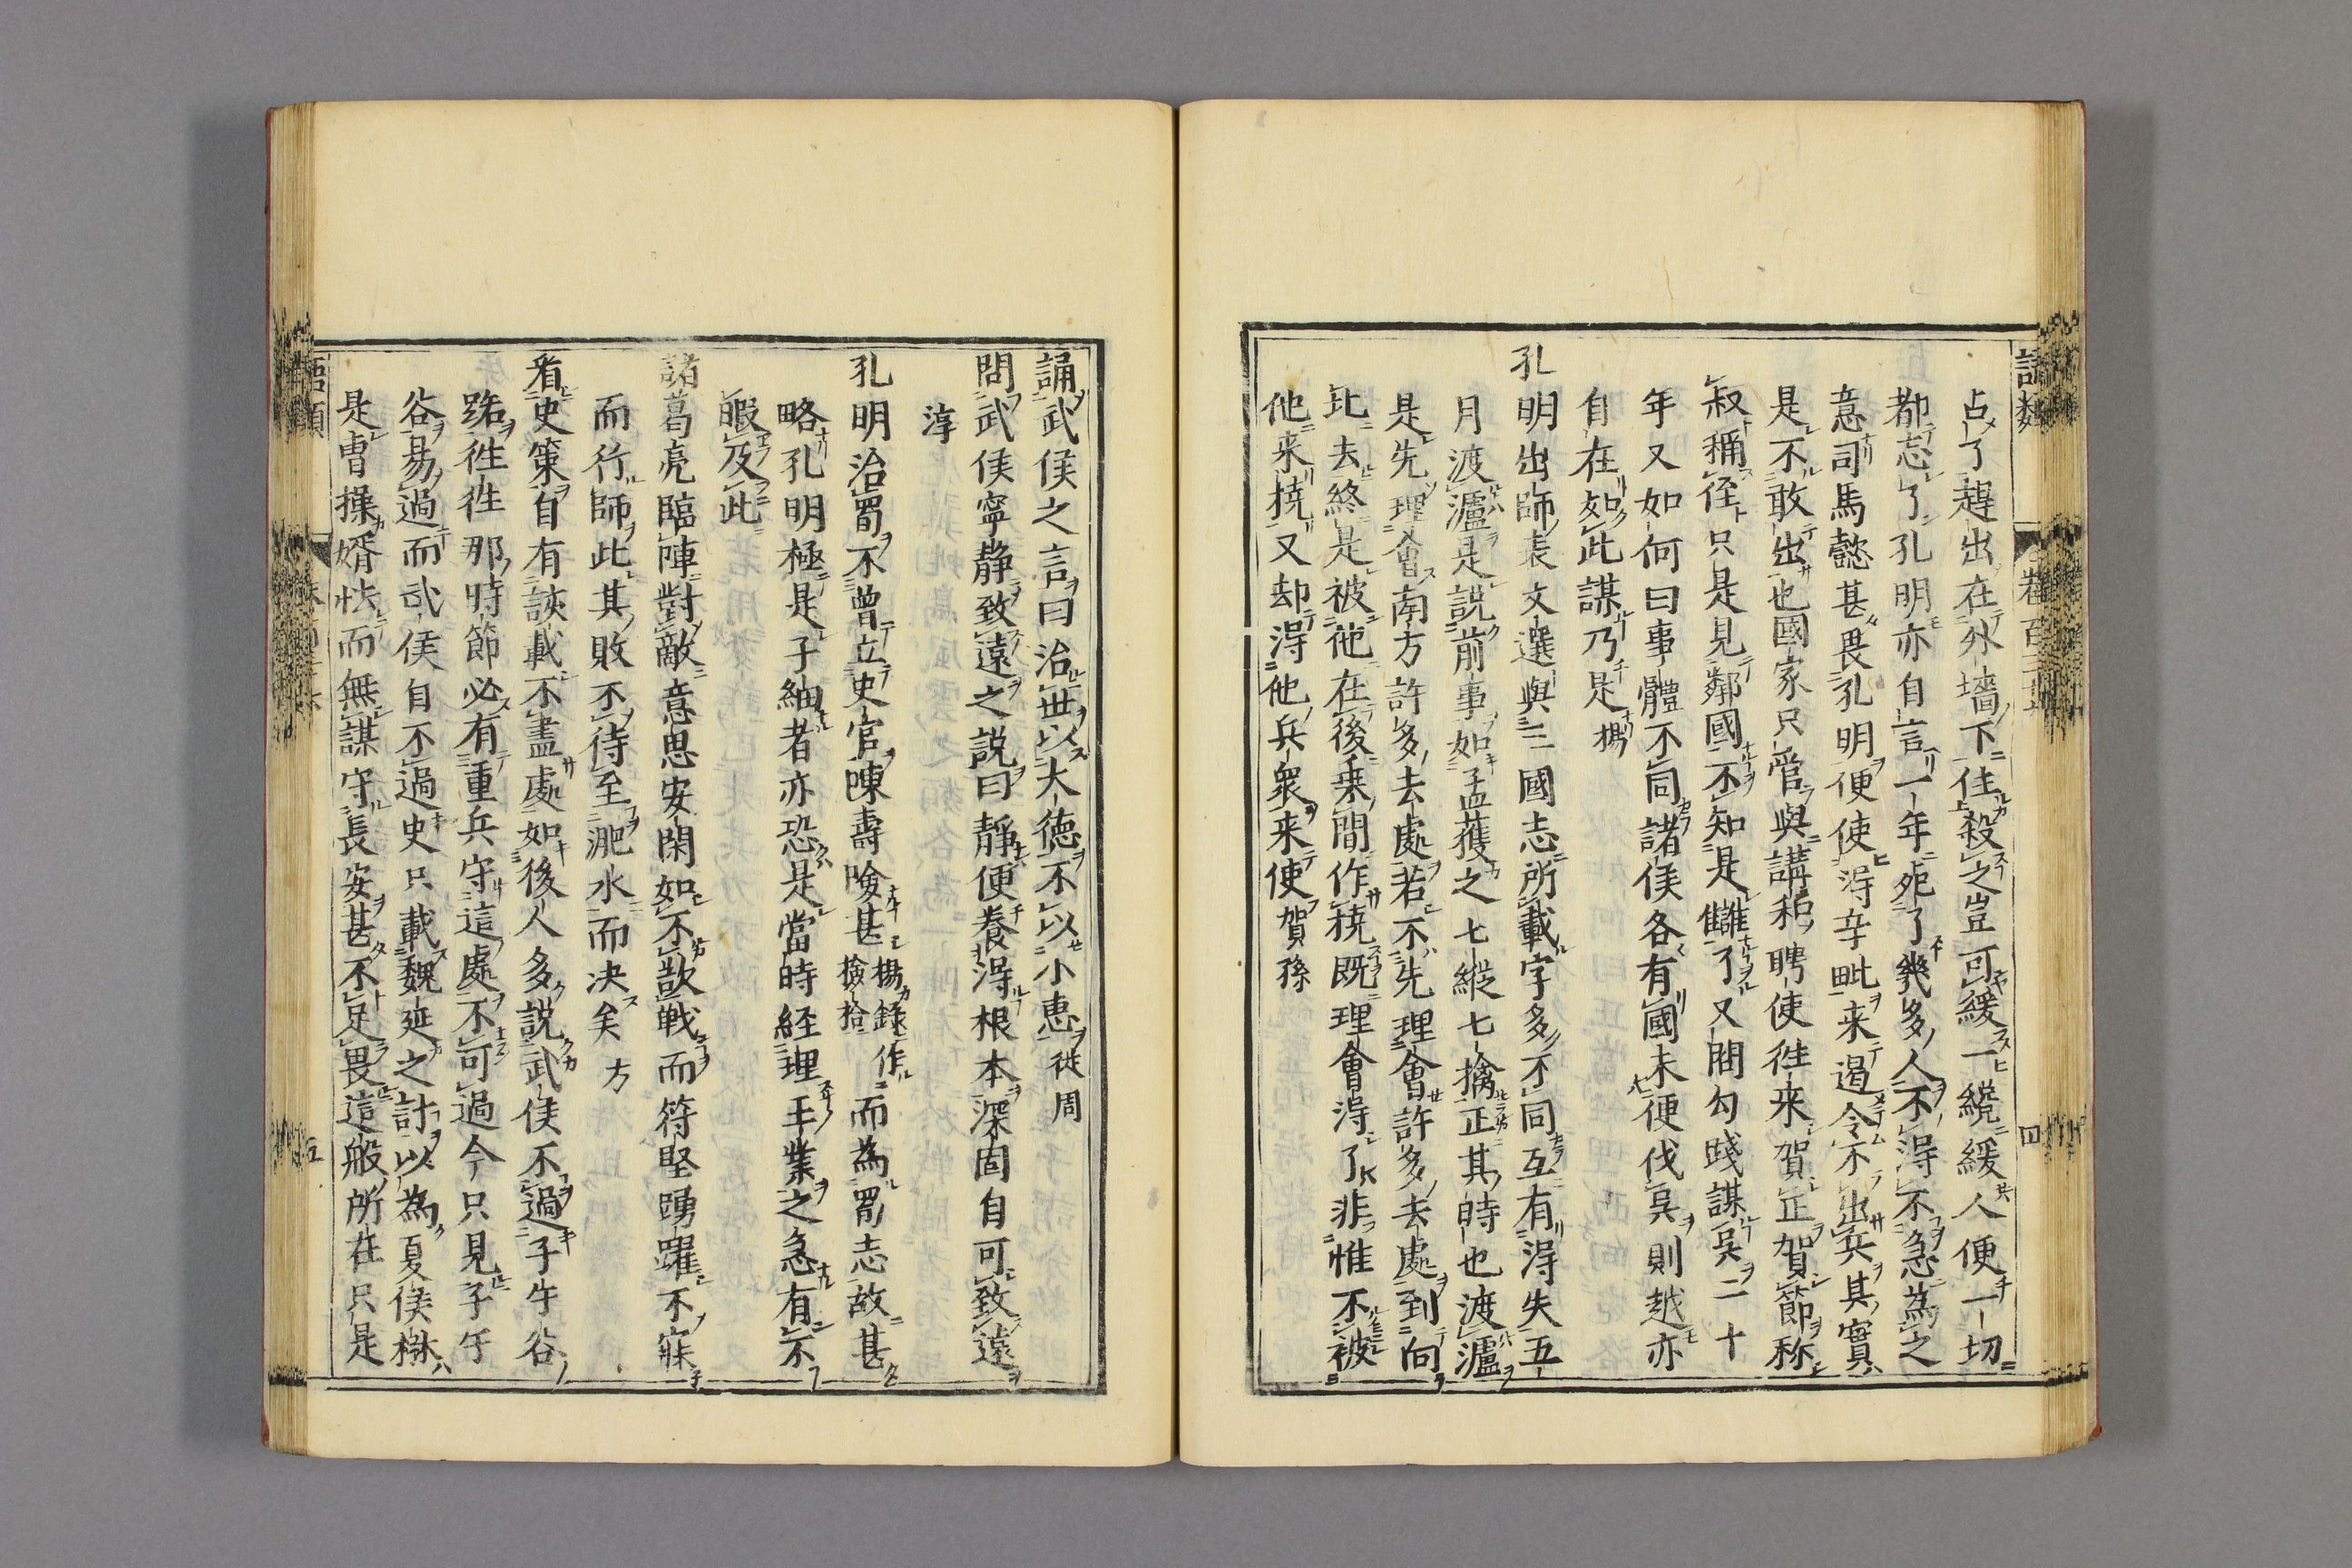 占了趕出在外墻下住殺之豈可緩一纔緩人便一切
都忘了孔明亦自言一年死了幾多人不得不急為之
意司馬懿甚畏孔明便使得辛毗来遏令不出兵其實
是不敢出也國家只管與講和聘使徃来賀正賀節称
叔稱侄只是見鄰國不知是讎了又問勾踐謀吳二十
年又如何曰事體不同諸侯各有國未便伐吳則越亦
自在如此謀乃是 楊
孔明出師表文選與三國志所載字多不同互有得失五
月渡瀘是說前事如孟獲之七縱七擒正其時也渡瀘
是先理會南方許多去處若不先理會許多去處到向
北去終是被他在後乗間作撓既理會得了非惟不被
他来撓又却得他兵衆来使 賀孫
語類
四
誦武侯之言曰治世以大徳不以小惠 從周
問武侯寧静致遠之說曰靜便養得根本深固自可致遠
淳
孔明治蜀不曽立史官陳壽險甚 楊錄作 撿拾 而為蜀志故甚
略孔明極是子細者亦恐是當時経理王業之急有不
暇及此
諸葛亮臨陣對敵意思安閑如不欲戰而符堅踴躍不寐
而行師此其敗不待至淝水而决矣 方
看史策自有該載不盡處如後人多説武侯不過子午谷
路徃徃那時節必有重兵守這處不可過今只見子午
谷易過而武侯自不過史只載魏延之計以為夏侯楙
是曹操婿怯而無謀守長安甚不足畏這般所在只是
語類
五